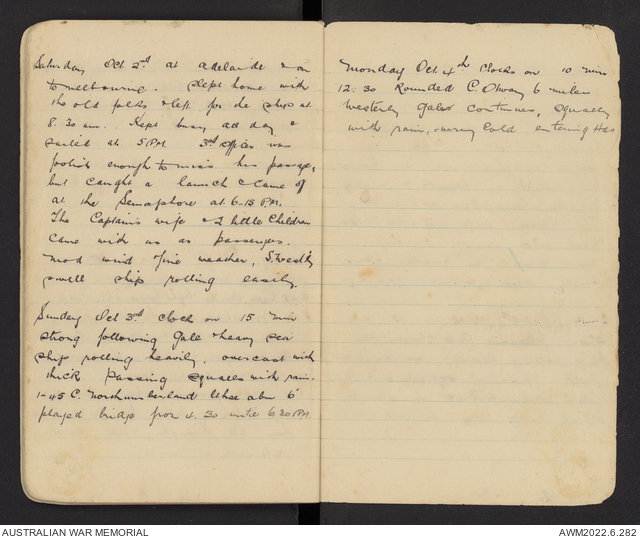 Saturday Oct 2nd at Adelaide & on
to Melbourne. Slept home with
the old folks & left for the ship at
8.30 am. Kept busy all day &
sailed at 5 PM. 3rd officer was
foolish enough to miss his passage,
but caught a launch & came off
at the Semaphore at 6-15 PM.
The Captain's wife & 2 little children
came with us as passengers.
Mod wind & fine weather, S. Westly
swell ship rolling easily.
Sunday Oct 3rd Clock on 15 min
strong following gale & heavy sea
ship rolling heavily, overcast with
thick passing squalls with rain.
1-45 C. Northumberland Lthse abm 6'
played bridge from 4.30 until 6 30 PM.
Monday Oct 4th Clocks on 10 mins
12.30 Rounded C Otway 6 miles
Westerly gales continues, squally
with rain, very cold entering Hds
AUSTRALIAN WAR MEMORIAL
AWM2022.6.282